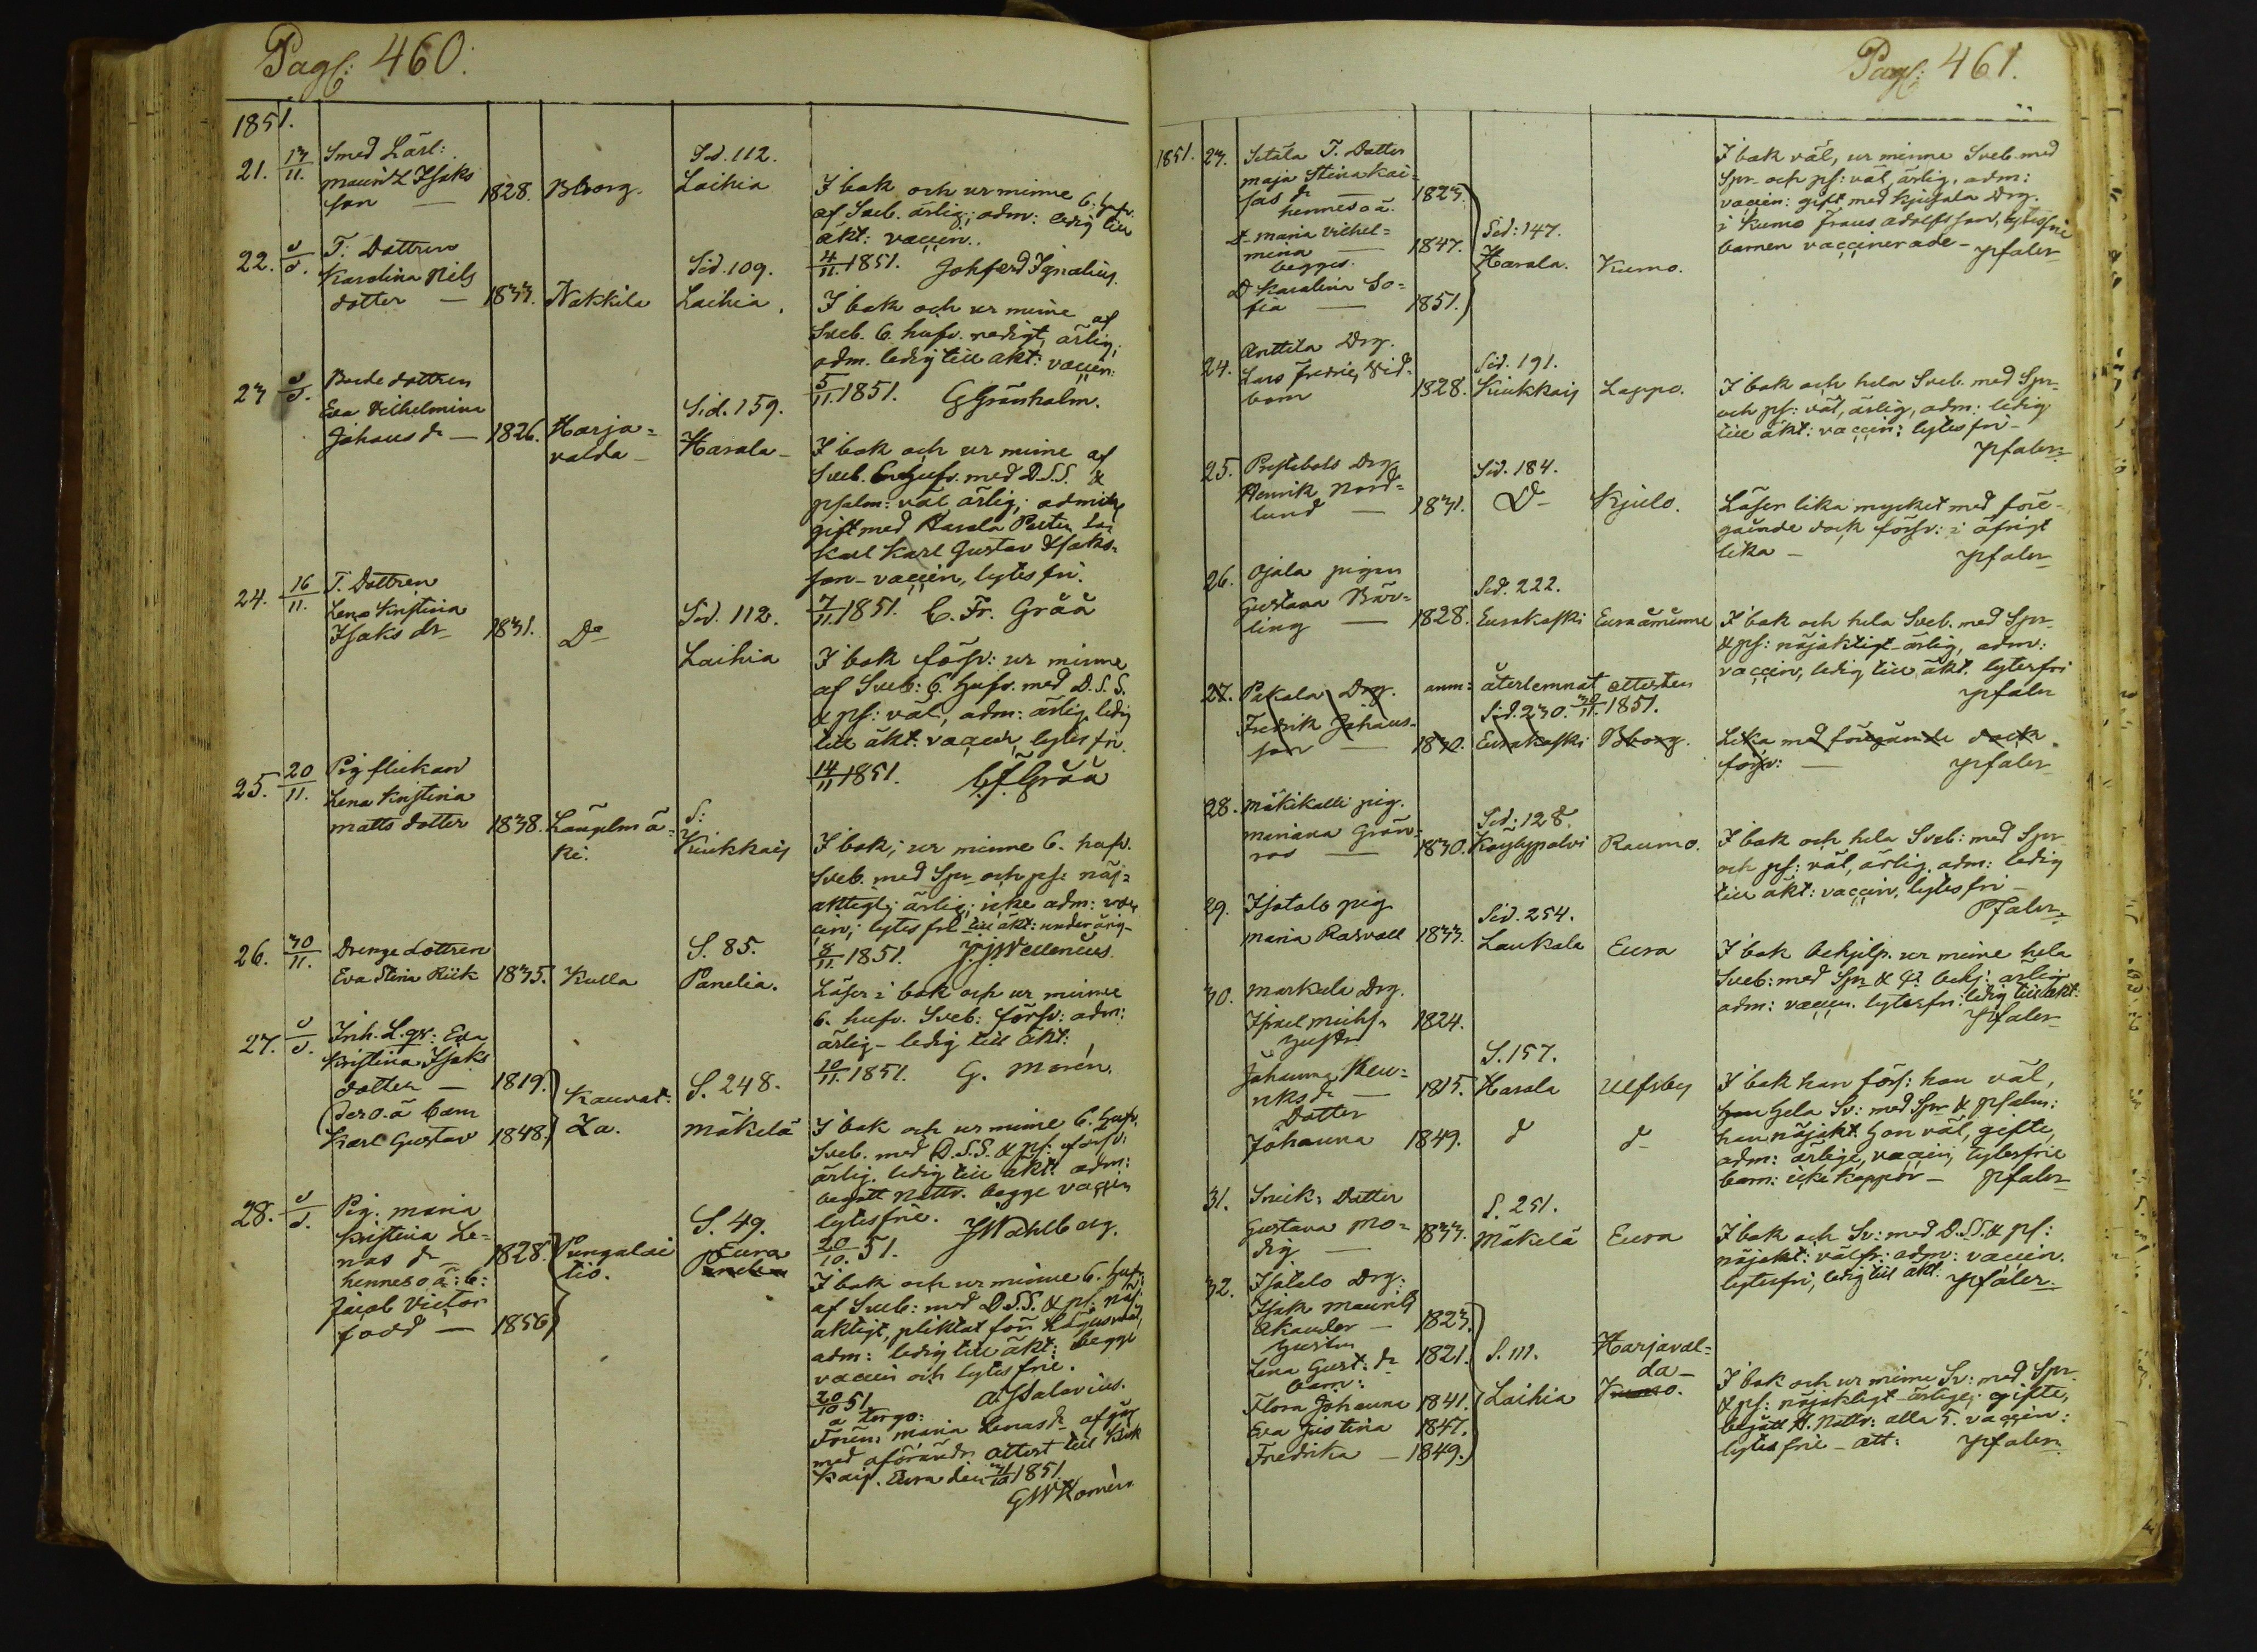 Pag: 460.
1851.
21. 13/11. Smed Lärl:
Mauritz Isaks
son — 1828. Bborg. Sid. 112. Laihia
I bok och ur minne 6. hufv.
af Sveb. ärlig; adm: ledig till
äkt: vaccin.
4/11 1851. Joh ferd Ignatius.
22. d/d. T. Dottren
Karolina Nils
dotter — 1833. Nakkila Sid. 109. Laihia.
I bok och ur minne af
Sveb. 6. hufv. nedigt, ärlig;
adm. ledig till äkt: vaccin:
5/11 1851. G Grönholm.
23 d/d. Bonde dottren
Eva Vilhelmina
Johans dr — 1826. Harja=
valda — Sid. 159. Harola —
I bok och ur minne af
Sveb. 6 hufv. med D.S.S. &
psalm: väl ärlig; admitt
gift med Harola
Karl Karl Gustav Isaks=
son — vaccin, lytes fri.
7/11 1851. C. Fr. Gråå
24. 16/11. T. Dottren
Lena Kristina
Isaks dr 1831. Do Sid. 112. Laihia
I bok försv: ur minne
af Sveb: 6. hufv. med D.S.S.
& ps: väl, adm: ärlig, ledig
till äkt: vaccin, lytes fri.
14/11 1851. C. f. Gråå
25. 20/11. Pig flickan
Lena Kristina
Matts dotter 1838. Längelmä=
ki. S: Kiukkais
I bok; ur minne 6. hufv.
Sveb. med Spr och ps: nöj=
aktigt; ärlig; icke adm: vac
cin; lytes fri — till äkt: underårig —
8/11 1851. J. J. Wellenius.
26. 30/11. Drenge dottren
Eva Stina Riik 1835. Kulla S. 85. Panelia.
Läser i bok och ur minne
6. hufv. Sveb: försv: adm:
ärlig — ledig till äkt:
10/11 1851. G. Morén.
27. d/d. Inh. L. gr: Eva
Kristina Isaks
dotter — 1819.
dess o. ä barn
Karl Gustav 1848. Kauvat:
Za. S. 248. Mäkelä
I bok och ur minne 6. hufv.
Sveb. med D.S.S. & ps: försv:
ärlig. ledig till äkt. adm:
begått nattv. begge vaccin
lytesfrie.
20/10 51. J Wahlberg.
28. d/d. Pig. Maria
Kristina Le=
nas dr — 1828.
hennes o ä: b:
Jacob Victor
född — 1850 Pungalai
tio. S. 49. Eura
Panelia
I bok och ur minne 6. hufv.
af Sveb: med D.S.S. & ps: nöj
aktigt, pliktat för Lägersmål,
adm: ledig till äkt: begge
vaccin och lytes frie.
20/10 51. A Salovius.
a tergo:
Fören: Maria Lenas dr afgår
med oförändr. attest till Kiuk
kais. Eura den 31/10 1851.
G W Homén
Pag: 461.
1851. 23. Setälä T. Dotter
Maja Stina Kai=
sas dr — 1823.
hennes o ä.
dr Maria Vilhel=
mina — 1847.
begges
Dr Karolina So=
fia — 1851. Sid: 147. Harola. Kumo.
I bok väl, ur minne Sveb. med
Spr — och ps: väl, ärlig, adm:
vaccin: gift med Kjulola Drg.
i Kumo Frans Adolfsson, lytesfri
barnen vaccinerade — Pfaler
24. Anttila Drg.
Lars Fredric Vid=
bom 1828. Sid. 191. Kiukkais Lappo.
I bok och hela Sveb. med Spr
och ps: väl, ärlig, adm: ledig
till äkt: vaccin: lytes fri —
Pfaler
25. Prestbols Drg.
Henrik Nord=
lund — 1831. Sid. 184. Do Kjulo.
Läser lika mycket med före=
gående dock försv: i öfrigt
lika — Pfaler
26. Ojala pigan
Gustava Bär=
ling — 1828. Sid. 222. Eurakoski Euraåminne
I bok och hela Sveb. med Spr
& ps: nöjaktigt — ärlig, adm:
vaccin, ledig till äkt. lytesfri
Pfaler
27. Pekola Drg. anm: återlemnat attesten
Fredrik Johans=
son — 1830. Sid. 230. 30/11 1851. Eurakoski Bborg.
Lika med föregående dock
försv: — Pfaler
28. Mäkikalli pig.
Mariana Grön=
roos — 1830. Sid: 128. Köylypolvi Raumo.
I bok och hela Sveb: med Spr
och ps: väl, ärlig, adm: ledig
till äkt: vaccin, lytes fri —
Pfaler
29. Isotalo pig
Maria Rosvall 1833. Sid. 254. Laukola Eura
I bok behjelp. ur minne hela
Sveb: med Spr & ps behj: ärlig
adm: vaccin. lytesfri: ledig till äkt:
Pfaler
30. Markula Drg.
Israel Michs= 1824.
hustru
Johanna Hen=
riks dr — 1815.
Dotter
Johanna 1849. S. 157. Harola d Ulfsby d
I bok han försv: hon väl,
hela Sv: med Spr & psalm:
han nöjakt. hon väl, gifte,
adm: ärlige, vaccin, lytesfrie
barn: icke koppor — Pfaler
31. Snick: Dotter
Gustava Mo=
dig — 1833. S. 251. Mäkelä Eura
I bok och Sv: med D.S.S. & ps:
nöjakt: välfr: adm: vaccin.
lytesfri, ledig till äkt. Pfaler
32. Isotalo Drg:
Isak Mauritz
Akander — 1823.
hustru
Lena Gust. dr 1821.
barn:
Flora Johanna 1841.
Eva Justina 1847.
Fredrika — 1849. S. 111. Laihia Harjaval=
da —
Kumo.
I bok och ur minne Sv: med Spr
& ps: nöjaktigt — ärlige; gifte,
begått H. Nattv: alla 5. vaccin:
lytes frie — att: Pfaler